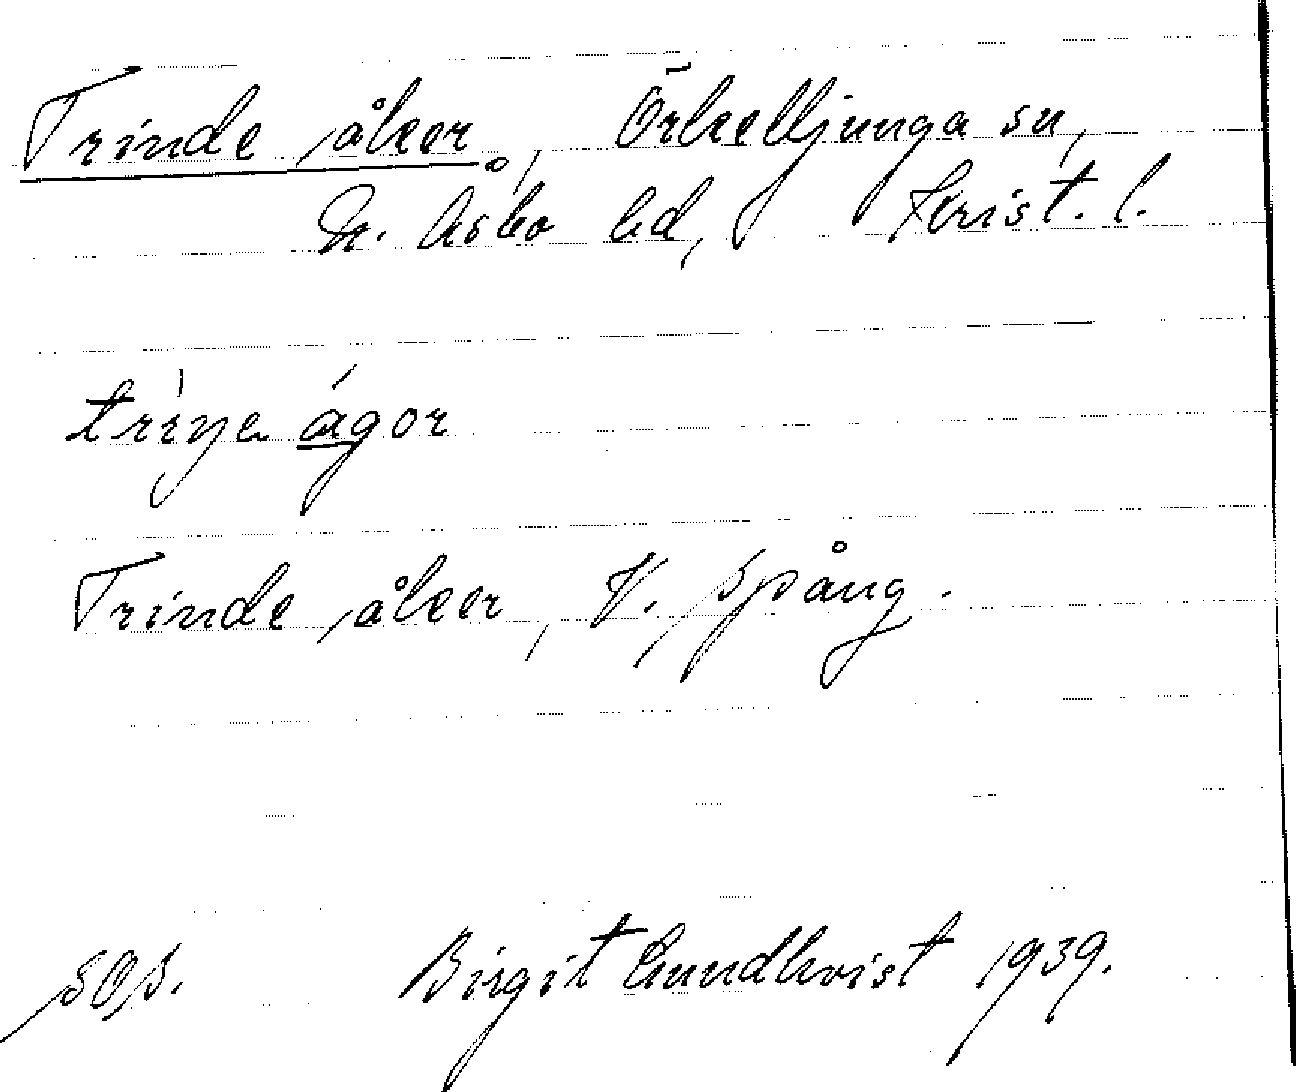 Trinde åker, Örkelljunga sn,
N. Åsbo hd, Krist. l.
trinje ágor
Trinde åker, V. Spång.
Birgit Lundkvist 1939.